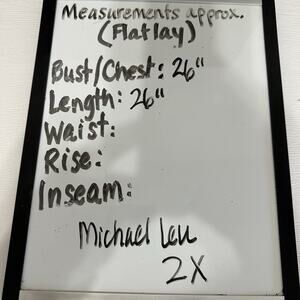 Measurements approx.
(Flatlay)
Bust/Chest: 26"
Length: 26"
Waist:
Rise:
Inseam:
Michael Lau
2X